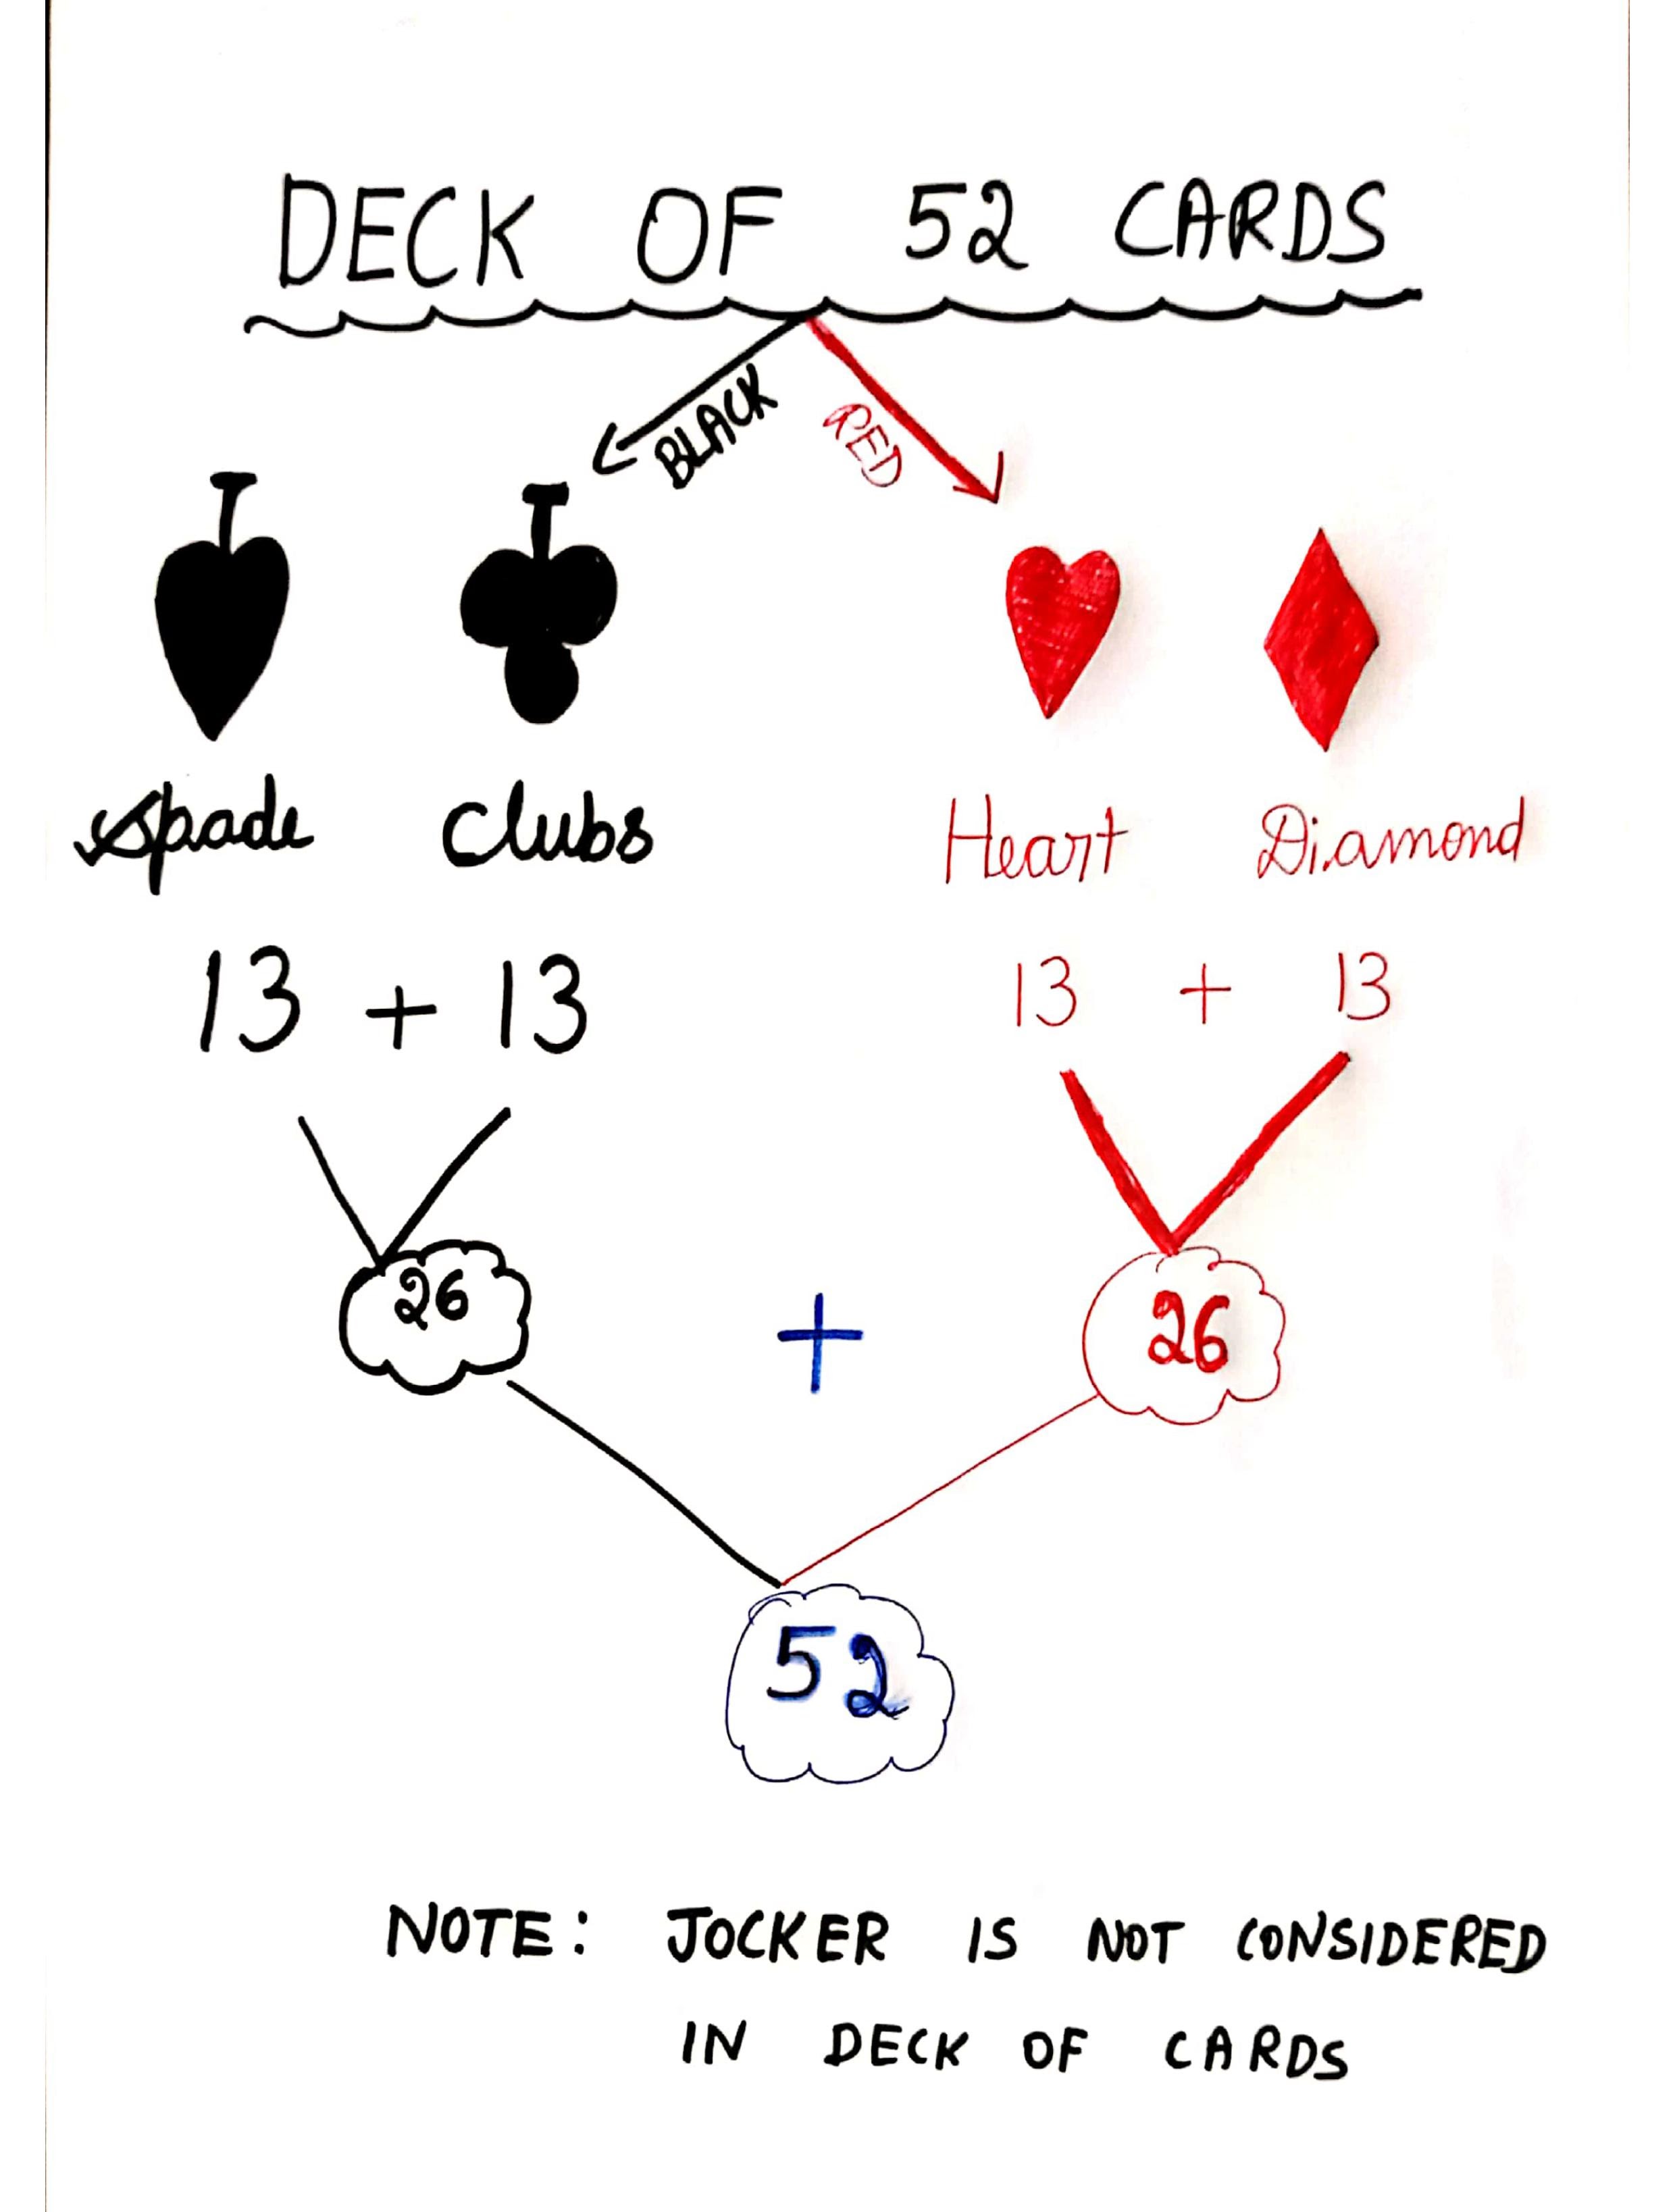 DECK OF 52 CARDS
BLACK RED
Spade Clubs Heart Diamond
13 + 13 13 + 13
26 + 26
52
NOTE: JOCKER IS NOT CONSIDERED
IN DECK OF CARDS